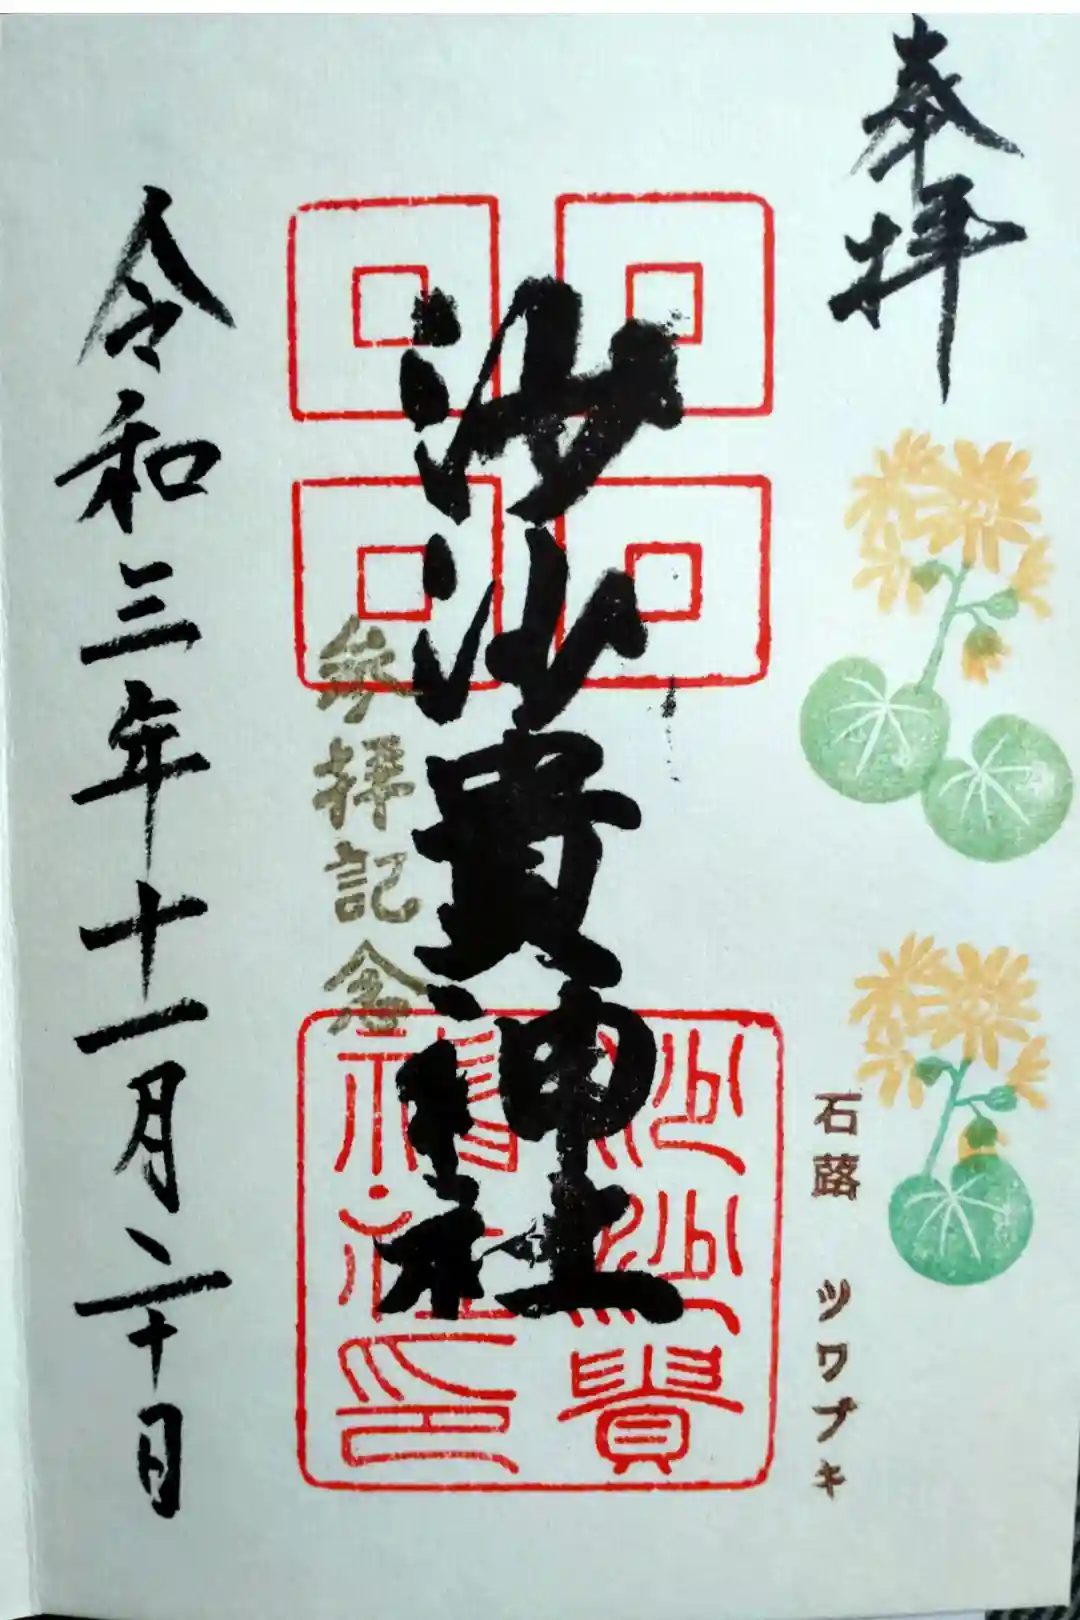 奉拝
石蕗 ツワブキ
沙沙貴神社
沙沙貴
神社印
参拝記念
令和三年十一月二十日